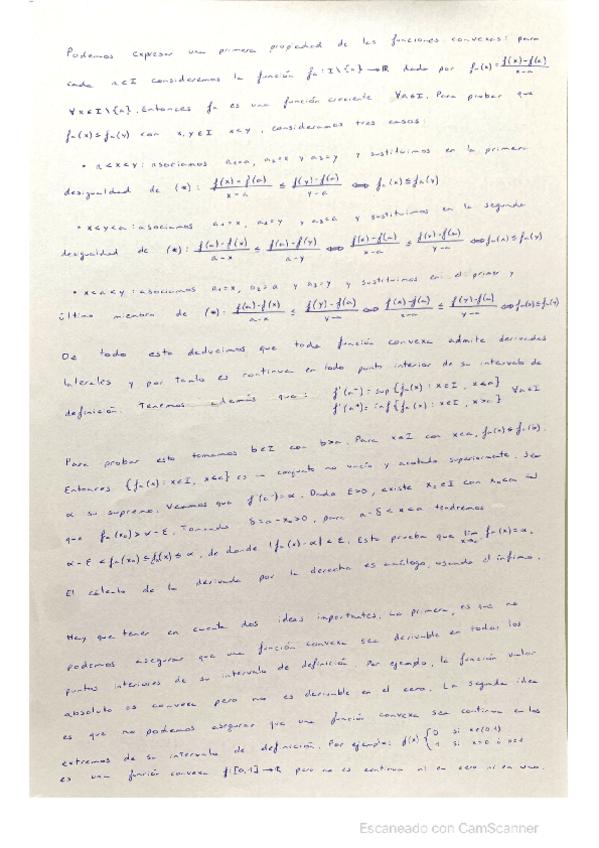 Podemos expresar una primera propiedad de las funciones convexas: para
cada a∈I consideremos la función fₐ: I\{a} → ℝ dada por fₐ(x) = (f(x)-f(a))/(x-a)
∀x∈I\{a}. Entonces fₐ es una función creciente ∀a∈I. Para probar que
fₐ(x) ≤ fₐ(y) con x,y∈I x<y, consideramos tres casos:
• a<x<y: asociamos a₁=a, a₂=x y a₃=y y sustituimos en la primera
desigualdad de (*): (f(x)-f(a))/(x-a) ≤ (f(y)-f(a))/(y-a) ⟺ fₐ(x) ≤ fₐ(y)
• x<y<a: asociamos a₁=x, a₂=y y a₃=a y sustituimos en la segunda
desigualdad de (*): (f(a)-f(x))/(a-x) ≤ (f(a)-f(y))/(a-y) ⟺ (f(x)-f(a))/(x-a) ≤ (f(y)-f(a))/(y-a) ⟺ fₐ(x) ≤ fₐ(y)
• x<a<y: asociamos a₁=x, a₂=a y a₃=y y sustituimos en el primer y
último miembro de (*): (f(a)-f(x))/(a-x) ≤ (f(y)-f(a))/(y-a) ⟺ (f(x)-f(a))/(x-a) ≤ (f(y)-f(a))/(y-a) ⟺ fₐ(x) ≤ fₐ(y)
De todo esto deducimos que toda función convexa admite derivadas
laterales y por tanto es continua en todo punto interior de su intervalo de
definición. Tenemos además que: f'(a⁻) = sup{fₐ(x): x∈I, x<a}
f'(a⁺) = inf{fₐ(x): x∈I, x>a} ∀a∈I
Para probar esto tomamos b∈I con b>a. Para x∈I con x<a, fₐ(x) ≤ fₐ(b).
Entonces {fₐ(x): x∈I, x<a} es un conjunto no vacío y acotado superiormente. Sea
α su supremo. Veamos que f'(a⁻)=α. Dado ε>0, existe x₀∈I con x₀<a tal
que fₐ(x₀) > α-ε. Tomando δ=a-x₀>0, para a-δ<x<a tendremos
α-ε < fₐ(x₀) ≤ fₐ(x) ≤ α, de donde |fₐ(x)-α|<ε. Esto prueba que lim fₐ(x)=α.
El cálculo de la derivada por la derecha es análogo, usando el ínfimo.
Hay que tener en cuenta dos ideas importantes. La primera, es que no
podemos asegurar que una función convexa sea derivable en todos los
puntos interiores de su intervalo de definición. Por ejemplo, la función valor
absoluto es convexa pero no es derivable en el cero. La segunda idea
es que no podemos asegurar que una función convexa sea continua en los
extremos de su intervalo de definición. Por ejemplo: f(x) { 0 si x∈(0,1)
1 si x=0 ó x=1
es una función convexa f: [0,1] → ℝ pero no es continua ni en cero ni en uno.
Escaneado con CamScanner